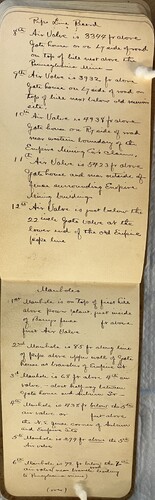 Pipe Line Record
8th Air Valve is 3344 ft above
Gate house or on Ly side of road
on top of hill most above the
Pennsylvania Mine
9th Air Valve is 3932 ft above
Gate house on Ly side of road on
top of hill most below old
10th Air Valve is 4935 ft above
Gate house on Ry side of road
near western boundary of the
Empire Mining Co's Claim
11th Air Valve is 5923 ft above
Gate house and near outside of
fence surrounding Empire
Mining buildings
12th Air Valve is just below the
22 inch Gate Valve at the
lower end of the old Empire
pipe line
Manholes
1st Manhole is on top of first hill
above power plant, just inside
of fence ft above
first Air Valve
2nd Manhole is 75 ft along line
of pipe above upper wall of Gate
house at
3rd Manhole is 68 ft above 4th air
valve - about half way between
Gate house and
4th Manhole is 435 ft below the 5th
air valve or just above
the N.E. fence corner of
5th Manhole is 479 ft above the 5th
Air valve
6th Manhole is 75 ft below the
air valve near leading
to Pennsylvania mine
(over)